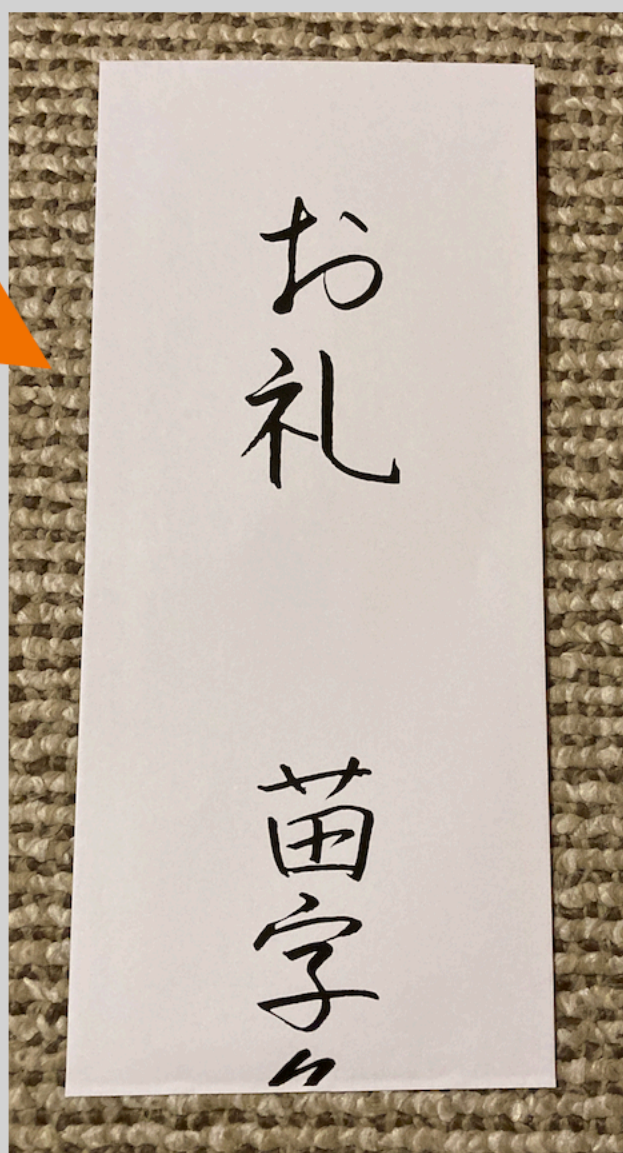 お礼
苗字